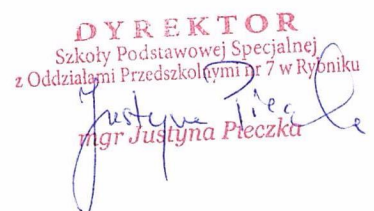 DYREKTOR
Szkoły Podstawowej Specjalnej
z Oddziałami Przedszkolnymi nr 7 w Rybniku
Justyna Piecz
mgr Justyna Pieczka